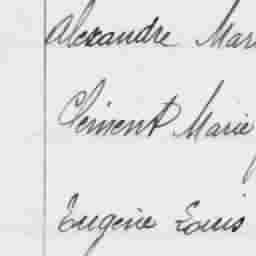 Alexandre Mar
Clément Marie
Eugène Louis